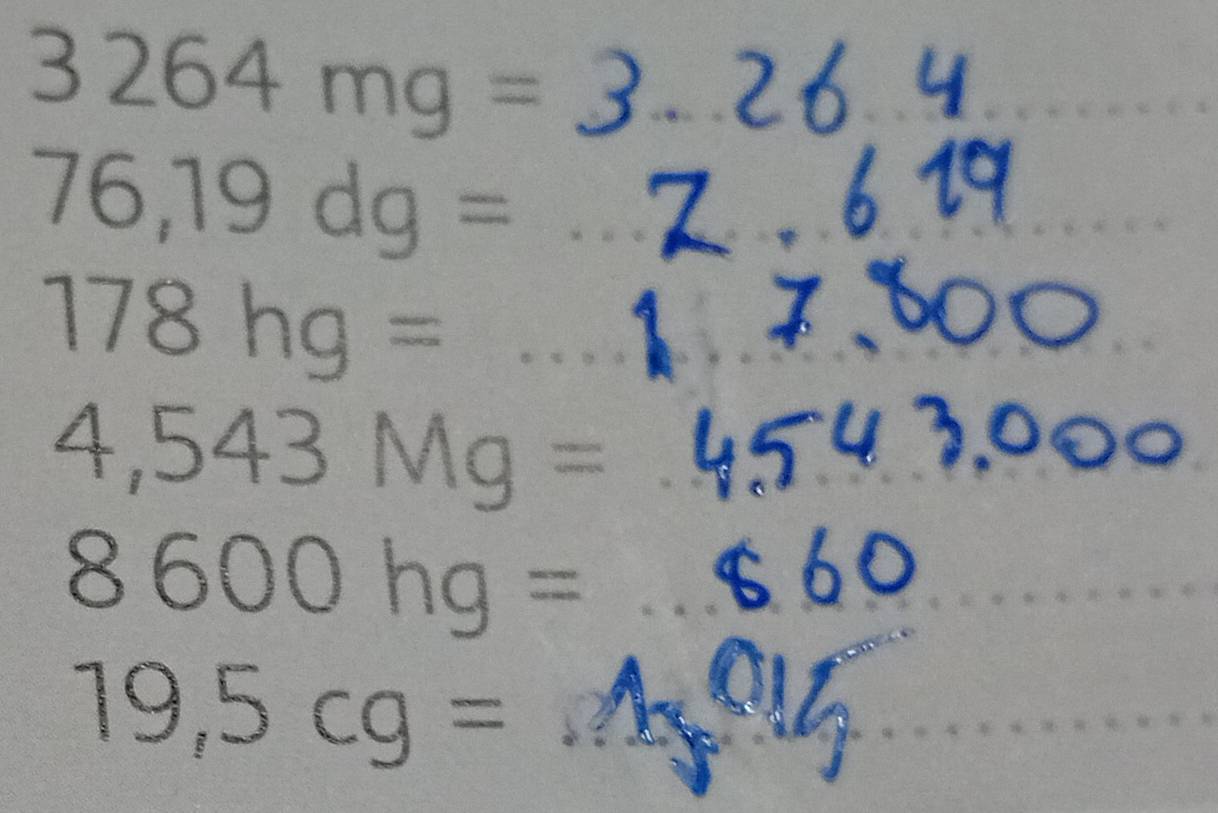 3 264 mg = 3.264
76,19 dg = 7.619
178 hg = 17.800
4,543 Mg = 4.543.000
8 600 hg = 860
19,5 cg =